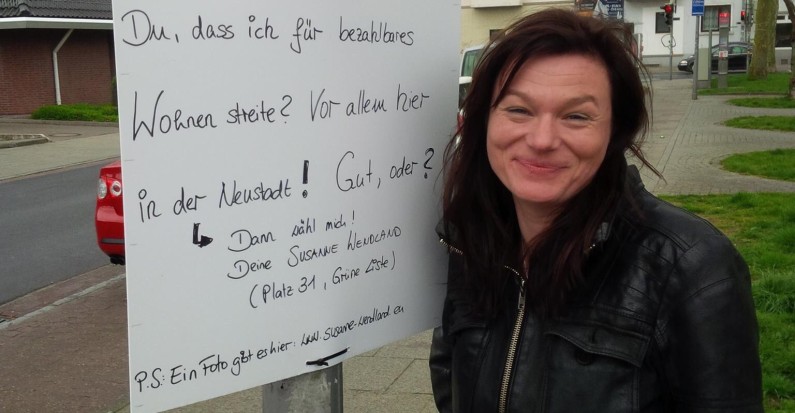 Du, dass ich für bezahlbares
Wohnen streite? Vor allem hier
in der Neustadt! Gut, oder?
Dann wähl mich!
Deine SUSANNE WENDLAND
(Platz 31, Grüne Liste)
P.S: Ein Foto gibt es hier: www.susanne-wendland.eu